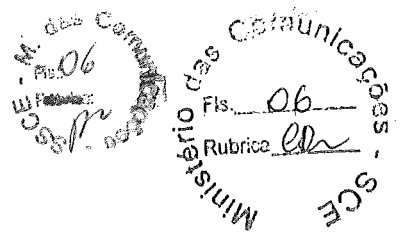 M. das Comunicações
SSCE
Fls. 06
Rubrica:
Ministério das Comunicações - SCE
Fls. 06
Rubrica